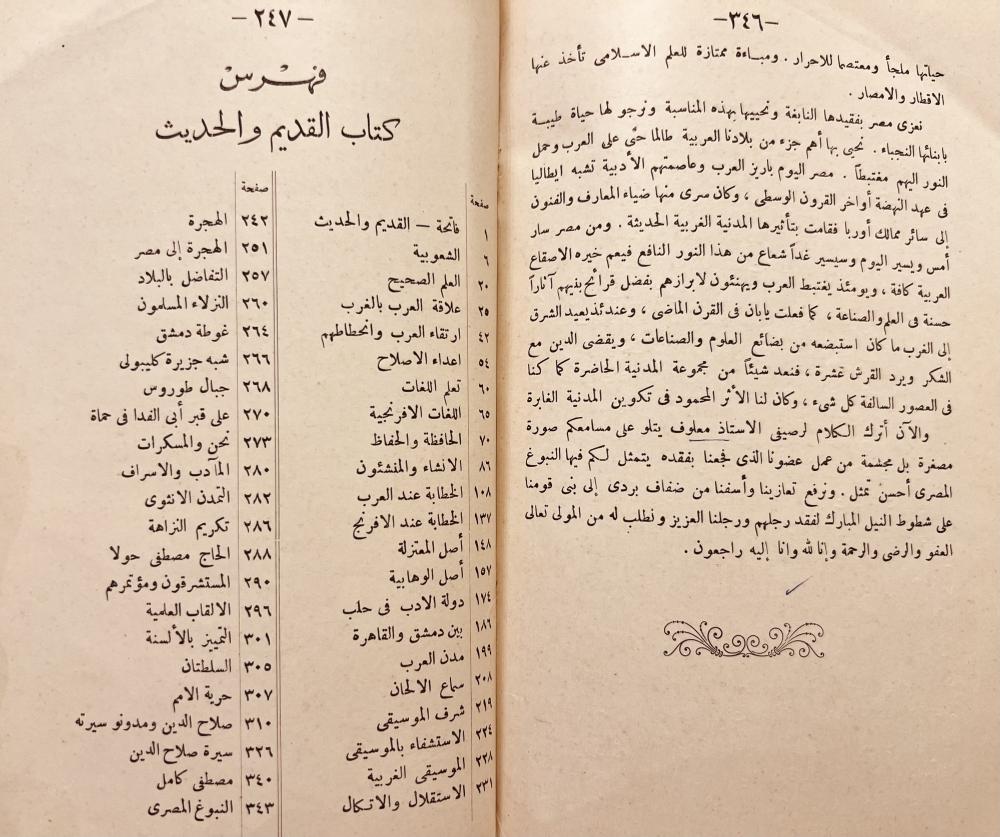 —٣٤٦—
حياتها ملجأ ومعتصما للاحرار . ومباءة ممتازة للعلم الاسلامى تأخذ عنها
الاقطار والامصار .
نعزى مصر بفقيدها النابغة ونحييها بهذه المناسبة ونرجو لها حياة طيبة
بابنائها النجباء . نحيى بها أهم جزء من بلادنا العربية طالما حنَّى على العرب وحمل
النور اليهم مغتبطاً . مصر اليوم باريز العرب وعاصمتهم الأدبية تشبه ايطاليا
فى عهد النهضة أواخر القرون الوسطى ، وكان سرى منها ضياء المعارف والفنون
إلى سائر ممالك أوربا فقامت بتأثيرها المدنية الغربية الحديثة . ومن مصر سار
أمس ويسير اليوم وسيسير غداً شعاع من هذا النور النافع فيعم خيره الاصقاع
العربية كافة ، ويومئذ يغتبط العرب ويهنئون لابرازهم بفضل قرائح بنيهم آثاراً
حسنة فى العلم والصناعة ، كما فعلت يابان فى القرن الماضى ، وعندئذ يعيد الشرق
إلى الغرب ما كان استبضعه من بضائع العلوم والصناعات ، ويقضى الدين مع
الشكر ويرد القرش عشرة ، فنعد شيئاً من مجموعة المدنية الحاضرة كما كنا
فى العصور السالفة كل شىء ، وكان لنا الأثر المحمود فى تكوين المدنية الغابرة
والآن أترك الكلام لرصيفى الاستاذ معلوف يتلو على مسامعكم صورة
مصغرة بل مجسمة من عمل عضونا الذى فجعنا بفقده يتمثل لكم فيها النبوغ
المصرى أحسن تمثل . ونرفع تعازينا وأسفنا من ضفاف بردى إلى بنى قومنا
على شطوط النيل المبارك لفقد رجلهم ورجلنا العزيز ونطلب له من المولى تعالى
العفو والرضى والرحمة وانا لله وانا إليه راجعون .
— ٢٤٧ —
فهرس
كتاب القديم والحديث
صفحة
١ فاتحة — القديم والحديث
٦ الشعوبية
٢٠ العلم الصحيح
٢٥ علاقة العرب بالغرب
٤٢ ارتقاء العرب وانحطاطهم
٥٤ اعداء الاصلاح
٦٠ تعلم اللغات
٦٥ اللغات الافرنجية
٧٠ الحافظة والحفاظ
٨٦ الانشاء والمنشئون
١٠٨ الخطابة عند العرب
١٣٧ الخطابة عند الافرنج
١٤٨ أصل المعتزلة
١٥٧ أصل الوهابية
١٧٤ دولة الادب فى حلب
١٨٦ بين دمشق والقاهرة
١٩٩ مدن العرب
٢٠٨ سماع الالحان
٢١٩ شرف الموسيقى
٢٢٤ الاستشفاء بالموسيقى
٢٢٨ الموسيقى الغربية
٢٣١ الاستقلال والاتكال
صفحة
٢٤٢ الهجرة
٢٥١ الهجرة إلى مصر
٢٥٧ التفاضل بالبلاد
٢٦٠ النزلاء المسلمون
٢٦٤ غوطة دمشق
٢٦٦ شبه جزيرة كليبولى
٢٦٨ جبال طوروس
٢٧٠ على قبر أبى الفدا فى حماة
٢٧٣ نحن والمسكرات
٢٨٠ المآدب والاسراف
٢٨٢ التمدن الانثوى
٢٨٦ تكريم النزاهة
٢٨٨ الحاج مصطفى حولا
٢٩٠ المستشرقون ومؤتمرهم
٢٩٦ الالقاب العلمية
٣٠١ التمييز بالألسنة
٣٠٥ السلطتان
٣٠٧ حرية الامم
٣١٠ صلاح الدين ومدونو سيرته
٣٢٦ سيرة صلاح الدين
٣٤٠ مصطفى كامل
٣٤٣ النبوغ المصرى